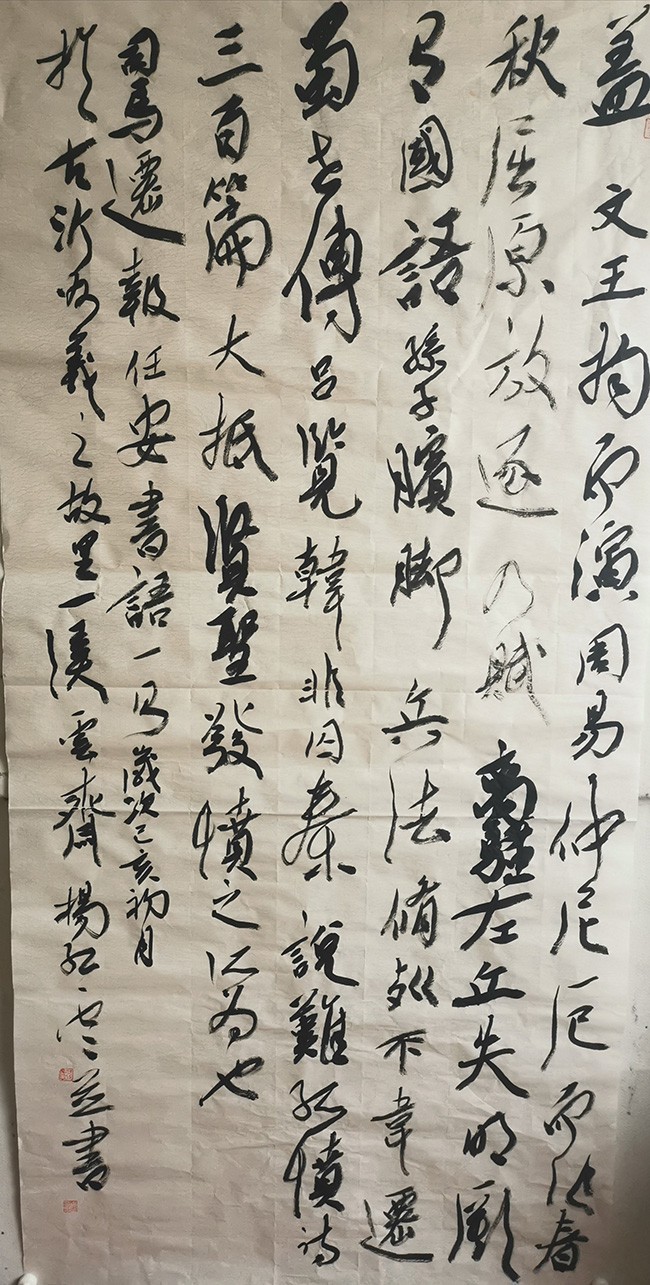 盖文王拘而演周易仲尼厄而作春
秋屈原放逐乃賦离騷左丘失明厥
有國語孫子臏脚兵法脩列不韋遷
蜀世傳呂覽韓非囚秦說難孤憤詩
三百篇大抵賢聖發憤之所為也
司馬遷報任安書語一歲次己亥初月
於古沂羲之故里一溪雲齋楊書